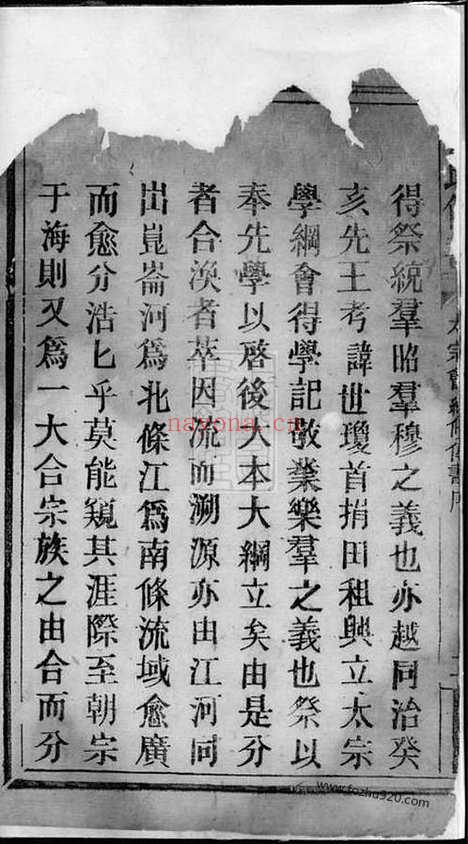 太宗會
得祭統羣昭羣穆之義也亦越同治癸
亥先王考諱世瓊首捐田租興立太宗
學綱會得學記敬業樂羣之義也祭以
奉先學以啓後大本大綱立矣由是分
者合渙者萃因流而溯源亦由江河同
出崑崙河爲北條江爲南條流域愈廣
而愈分浩匕乎莫能窺其涯際至朝宗
于海則又爲一大合宗族之由合而分
nayona.cn
www.fozhu920.com